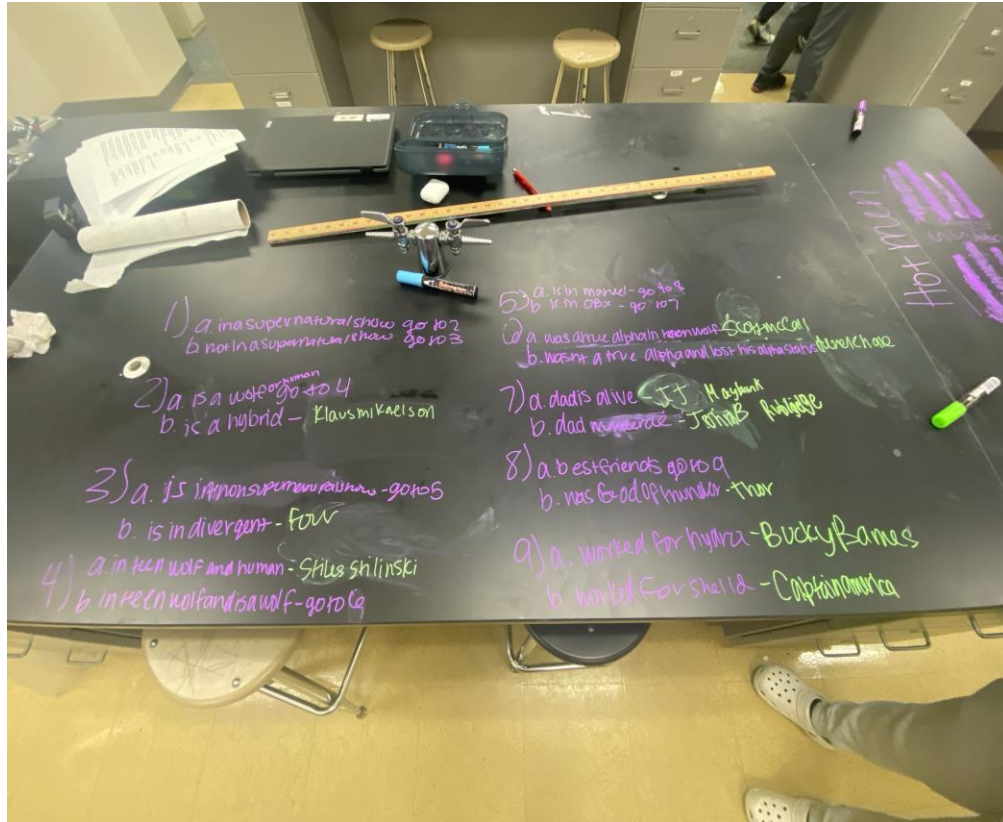 Hot men
1) a. in a supernatural show go to 2
b. not in a supernatural show go to 3
2) a. is a wolf or human go to 4
b. is a hybrid - Klaus mikaelson
3) a. is in nonsupernatural show - go to 5
b. is in divergent - Four
4) a. in teen wolf and human - Stiles Stilinski
b. in teen wolf and is a wolf - go to 6
5) a. is in marvel - go to 8
b. is in OBX - go to 7
6) a. was a true alpha in teen wolf - Scott McCall
b. wasnt a true alpha and lost his alpha status
7) a. dad is alive - JJ Maybank
b. dad - John B
8) a. bestfriends go to 9
b. was God of thunder - thor
9) a. worked for hydra - Bucky Barnes
b. worked for sheild - Captain america